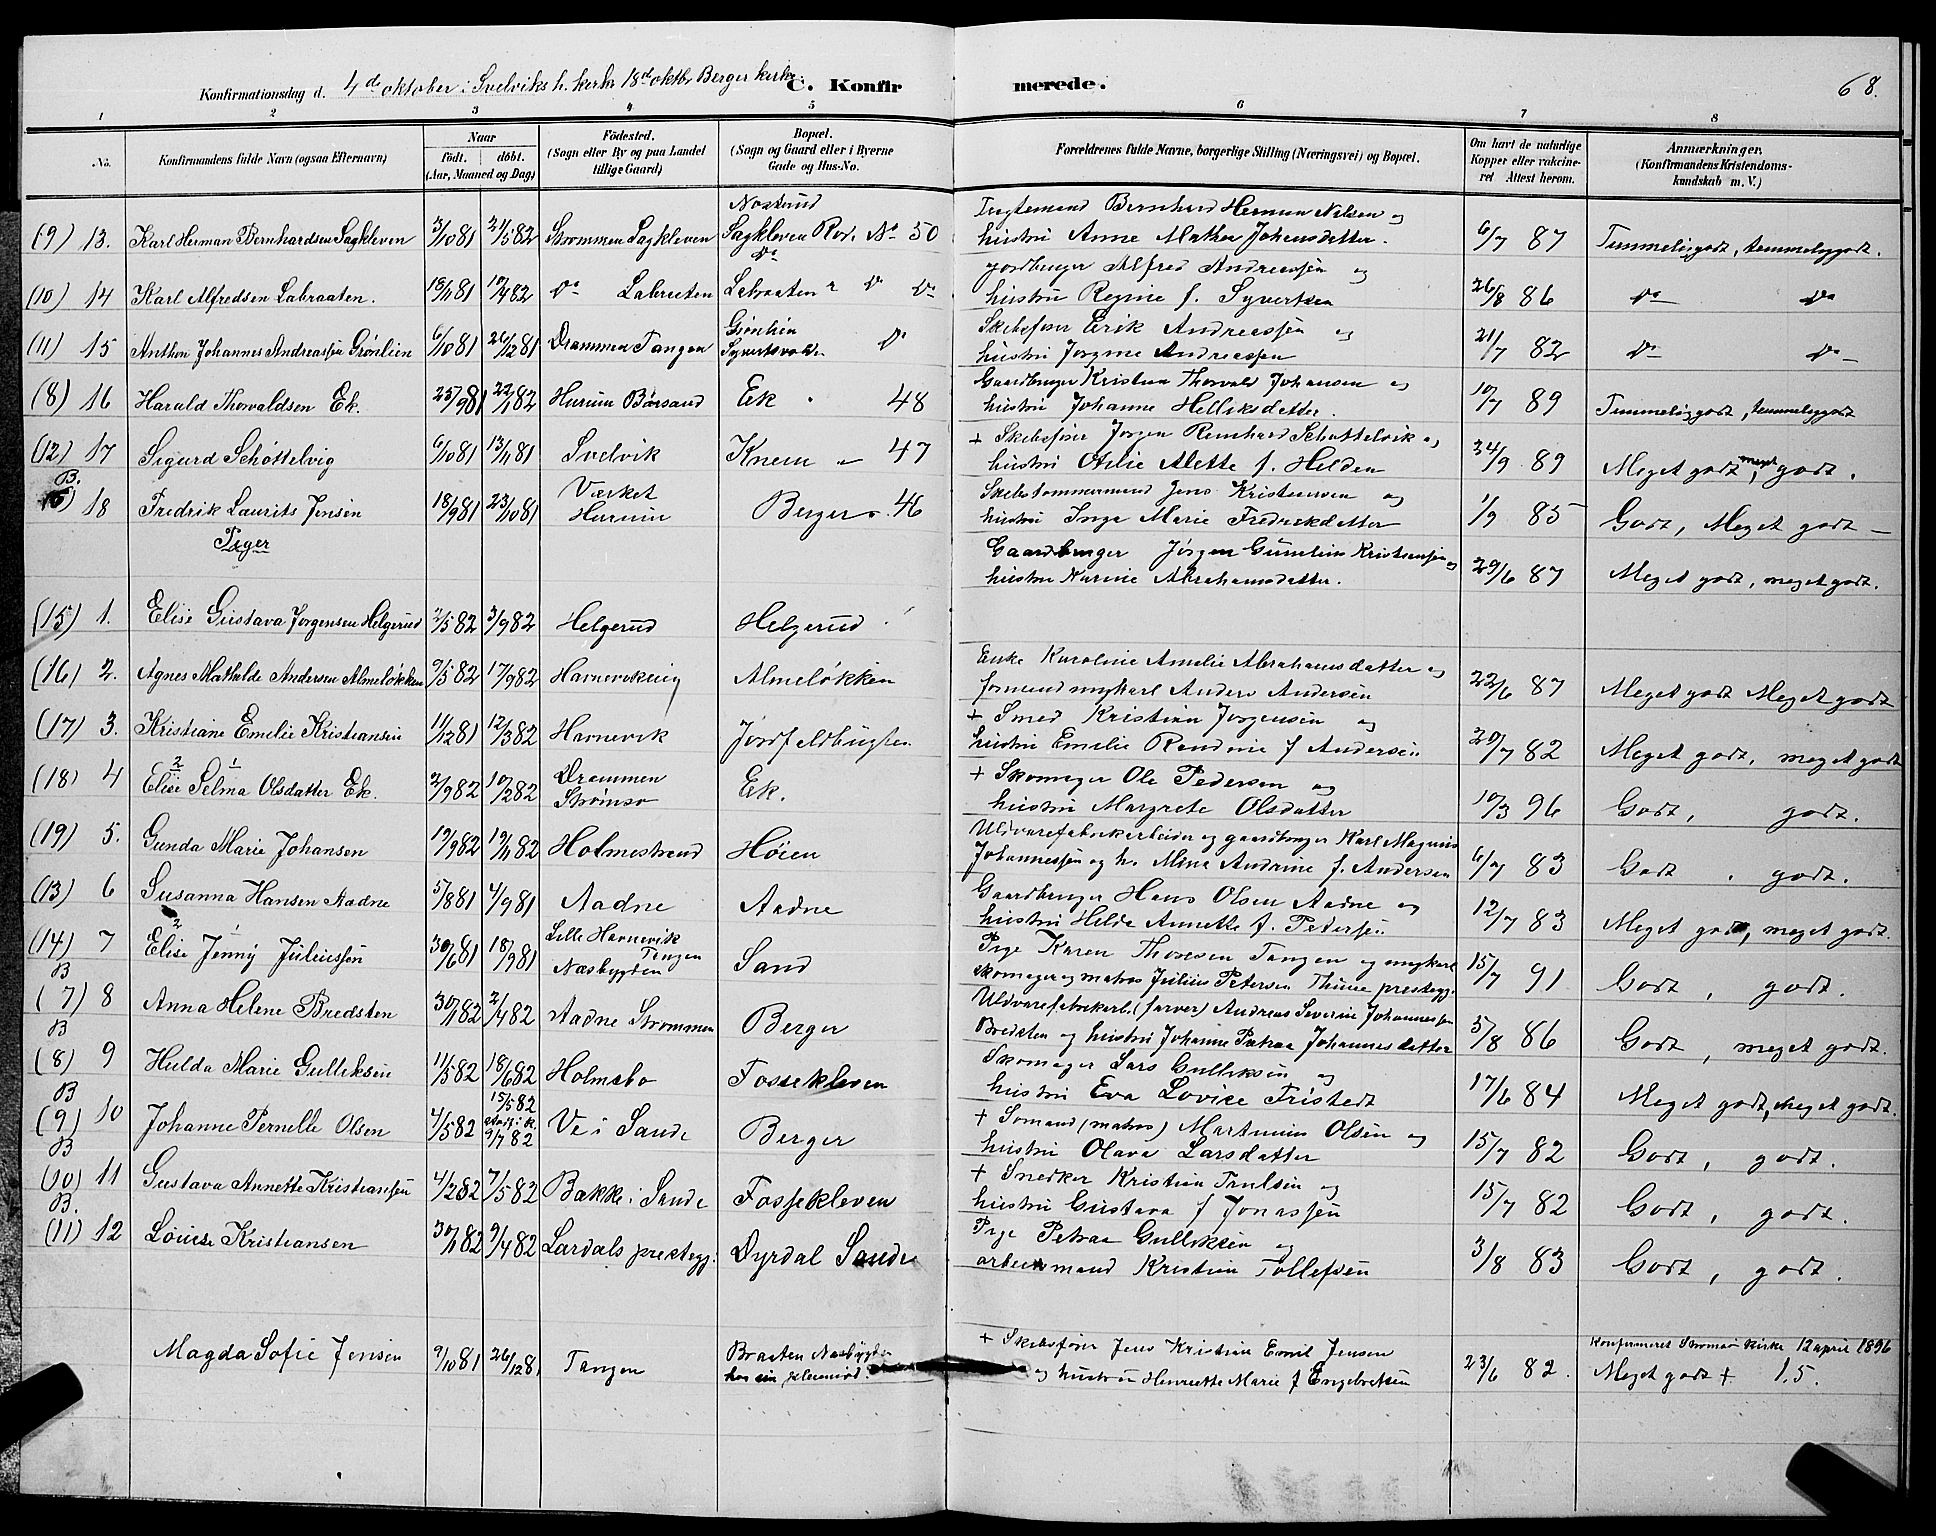 Konfirmationsdag d. 4de oktober i Svelviks h. kirke 18de oktbr Berger kirke C. Konfirmerede. 68.
1 2 3 4 5 6 7 8
No. Konfirmandens fulde Navn (ogsaa Efternavn) Naar födt. döbt. (Aar, Maaned og Dag) Födested. (Sogn eller By og paa Landet tillige Gaard) Bopæl. (Sogn og Gaard eller i Byerne Gade og Hus-No. Forældrenes fulde Navne, borgerlige Stilling (Næringsvei) og Bopæl. Om havt de naturlige Kopper eller vakcineret Attest herom. Anmærkninger. (Konfirmandens Kristendomskundskab m. V.)
(9) 13. Karl Herman Bernhardsen Sagkleven 3/10 81 21/5 82 Strømmen Sagkleven Nostrud Sagkleven Rod. No 50 Bernhard Herman Nilsen og hustru Anne Mathea Johansdatter. 6/7 87 Temmelig godt, temmelig godt.
(10) 14 Karl Alfredsen Labraaten. 18/11 81 10/4 82 Do Labraaten Do Labraaten " Do Do Jordbruger Alfred Andreassen og hustru Regine f. Syvertsen 26/8 86 Do Do
(11) 15 Anthon Johannes Andreassen Grønlien 6/10 81 26/12 81 Drammen Tangen Grønlien Do Skibsfører Erik Andreassen og hustru Jørgine Andreassen 21/7 82 Do Do
(8) 16 Harald Thorvaldsen Ek. 25/9 81 22/1 82 Hurum Børsand Ek " 48 Gaardbruger Kristian Thorvald Johansen og hustru Johanne Helliksdatter. 10/7 89 Temmelig godt, temmelig godt
(12) 17 Sigurd Schøttelvig 6/10 81 13/11 81 Svelvik Knem " 47 + Skibsfører Jørgen Reinhard Schøttelvik og hustru Otilie Alette f. Helden 24/9 89 Meget godt, meget godt.
B. (6) 18 Fredrik Laurits Jensen 18/9 81 23/10 81 Værket Hurum Berger " 46 Skibstømmermand Jens Kristensen og hustru Inga Marie Fredriksdatter 1/9 85 Godt, Meget godt
Piger
(15) 1. Elise Gustava Jørgensen Helgerud 2/5 82 3/9 82 Helgerud Helgerud Gaardbruger Jørgen Gunelius Kristiansen og hustru Nurine Abrahamsdatter. 29/6 87 Meget godt, meget godt.
(16) 2. Agnes Mathilde Andersen Almeløkken 9/5 82 17/9 82 Havnevikeig Almeløkken Enke Karoline Amelie Abrahamsdatter og formend ungkarl Anders Andersen 22/6 87 Meget godt Meget godt
(17) 3. Kristiane Emelie Kristiansen 11/12 81 12/3 82 Havnevik Jordfaldbugten + Smed Kristian Jørgensen og hustru Emelie Randine f Andersen 20/7 82 Meget godt, meget godt
(18) 4 Elise 2 Selma 1 Olsdatter Ek. 2/9 82 10/2 82 Drammen Strømsø Ek. + Skomager Ole Pedersen og hustru Margrete Olsdatter 10/3 96 Godt, godt.
(19) 5. Gunda Marie Johansen 19/9 82 19/11 82 Holmestrand Høien Uldvarefabrikarbeider og gaardbruger Karl Magnus Johannessen og h. Mina Andrine f. Andersen 6/7 83 Godt, godt.
(13) 6 Susanna Hansen Aadne 5/8 81 4/9 81 Aadne Aadne Gaardbruger Hans Olsen Aadne og hustru Helde Annette f. Petersen 12/7 83 Meget godt, meget godt.
(14) 7 Elise 2 Jenny 1 Juliussen 30/6 81 18/9 81 Lille Havnevik Tangen Næsbygden Sand Pige Karen Thoresen Tangen og ungkarl skomager og matros Julius Petersen Thune prestegj. 15/7 91 Godt, godt.
B (7) 8 Anna Helene Bredsten 30/1 82 2/4 82 Aadne Strømmen Berger Uldvarefabrikarb. (farver) Andreas Severin Johannessen Bredsten og hustru Johanne Petrea Johannesdatter 5/8 86 Godt, meget godt.
B (8) 9 Hulda Marie Gulliksen 11/5 82 18/6 82 Holmsbo Fossekleven Skomager Lars Gulliksen og hustru Eva Lovise Fristedt 17/6 84 Meget godt, Meget godt.
B (9) 10 Johanne Pernelle Olsen 4/5 82 15/5 82 stadf. i k. 9/7 82 Ve i Sande Berger + Sømand (matros) Martinius Olsen og hustru Olava Larsdatter 15/7 82 Godt, godt.
B (10) 11 Gustava Annette Kristiansen 4/2 82 7/5 82 Bakke i Sande Fossekleven + Snedker Kristian Paulsen og hustru Gustava f Jonassen 15/7 82 Godt, godt.
B. (11) 12 Louise Kristiansen 30/1 82 9/4 82 Lardals prestegj. Dyrdal Sande Pige Petraa Gulliksen og arbeidsmand Kristian Tollefsen 3/8 83 Godt, godt.
Magda Sofie Jensen 9/10 81 26/12 81 Tangen Braaten Næsbygden hos sin + Skibsfører Jens Kristian Emil Jensen og hustru Henriette Marie f Engebretsen 23/6 82. Konfirmeret Strømsø Kirke 12 april 1896 Meget godt + 1.5.